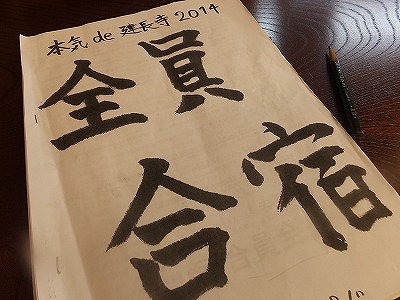 本気de建長寺2014
全員
合宿